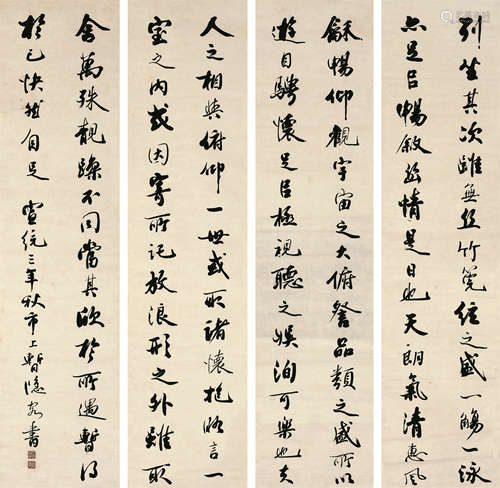 列坐其次雖無絲竹筦弦之盛一觴一詠
亦足以暢敘幽情是日也天朗氣清惠風
龢暢仰觀宇宙之大俯察品類之盛所以
遊目騁懷足以極視聽之娛洵可樂也夫
人之相與俯仰一世或取諸懷抱晤言一
室之內或因寄所託放浪形之外雖取
舍萬殊靜躁不同當其欣於所遇暫得
於己快然自足 宣統三年秋市上暫隱書